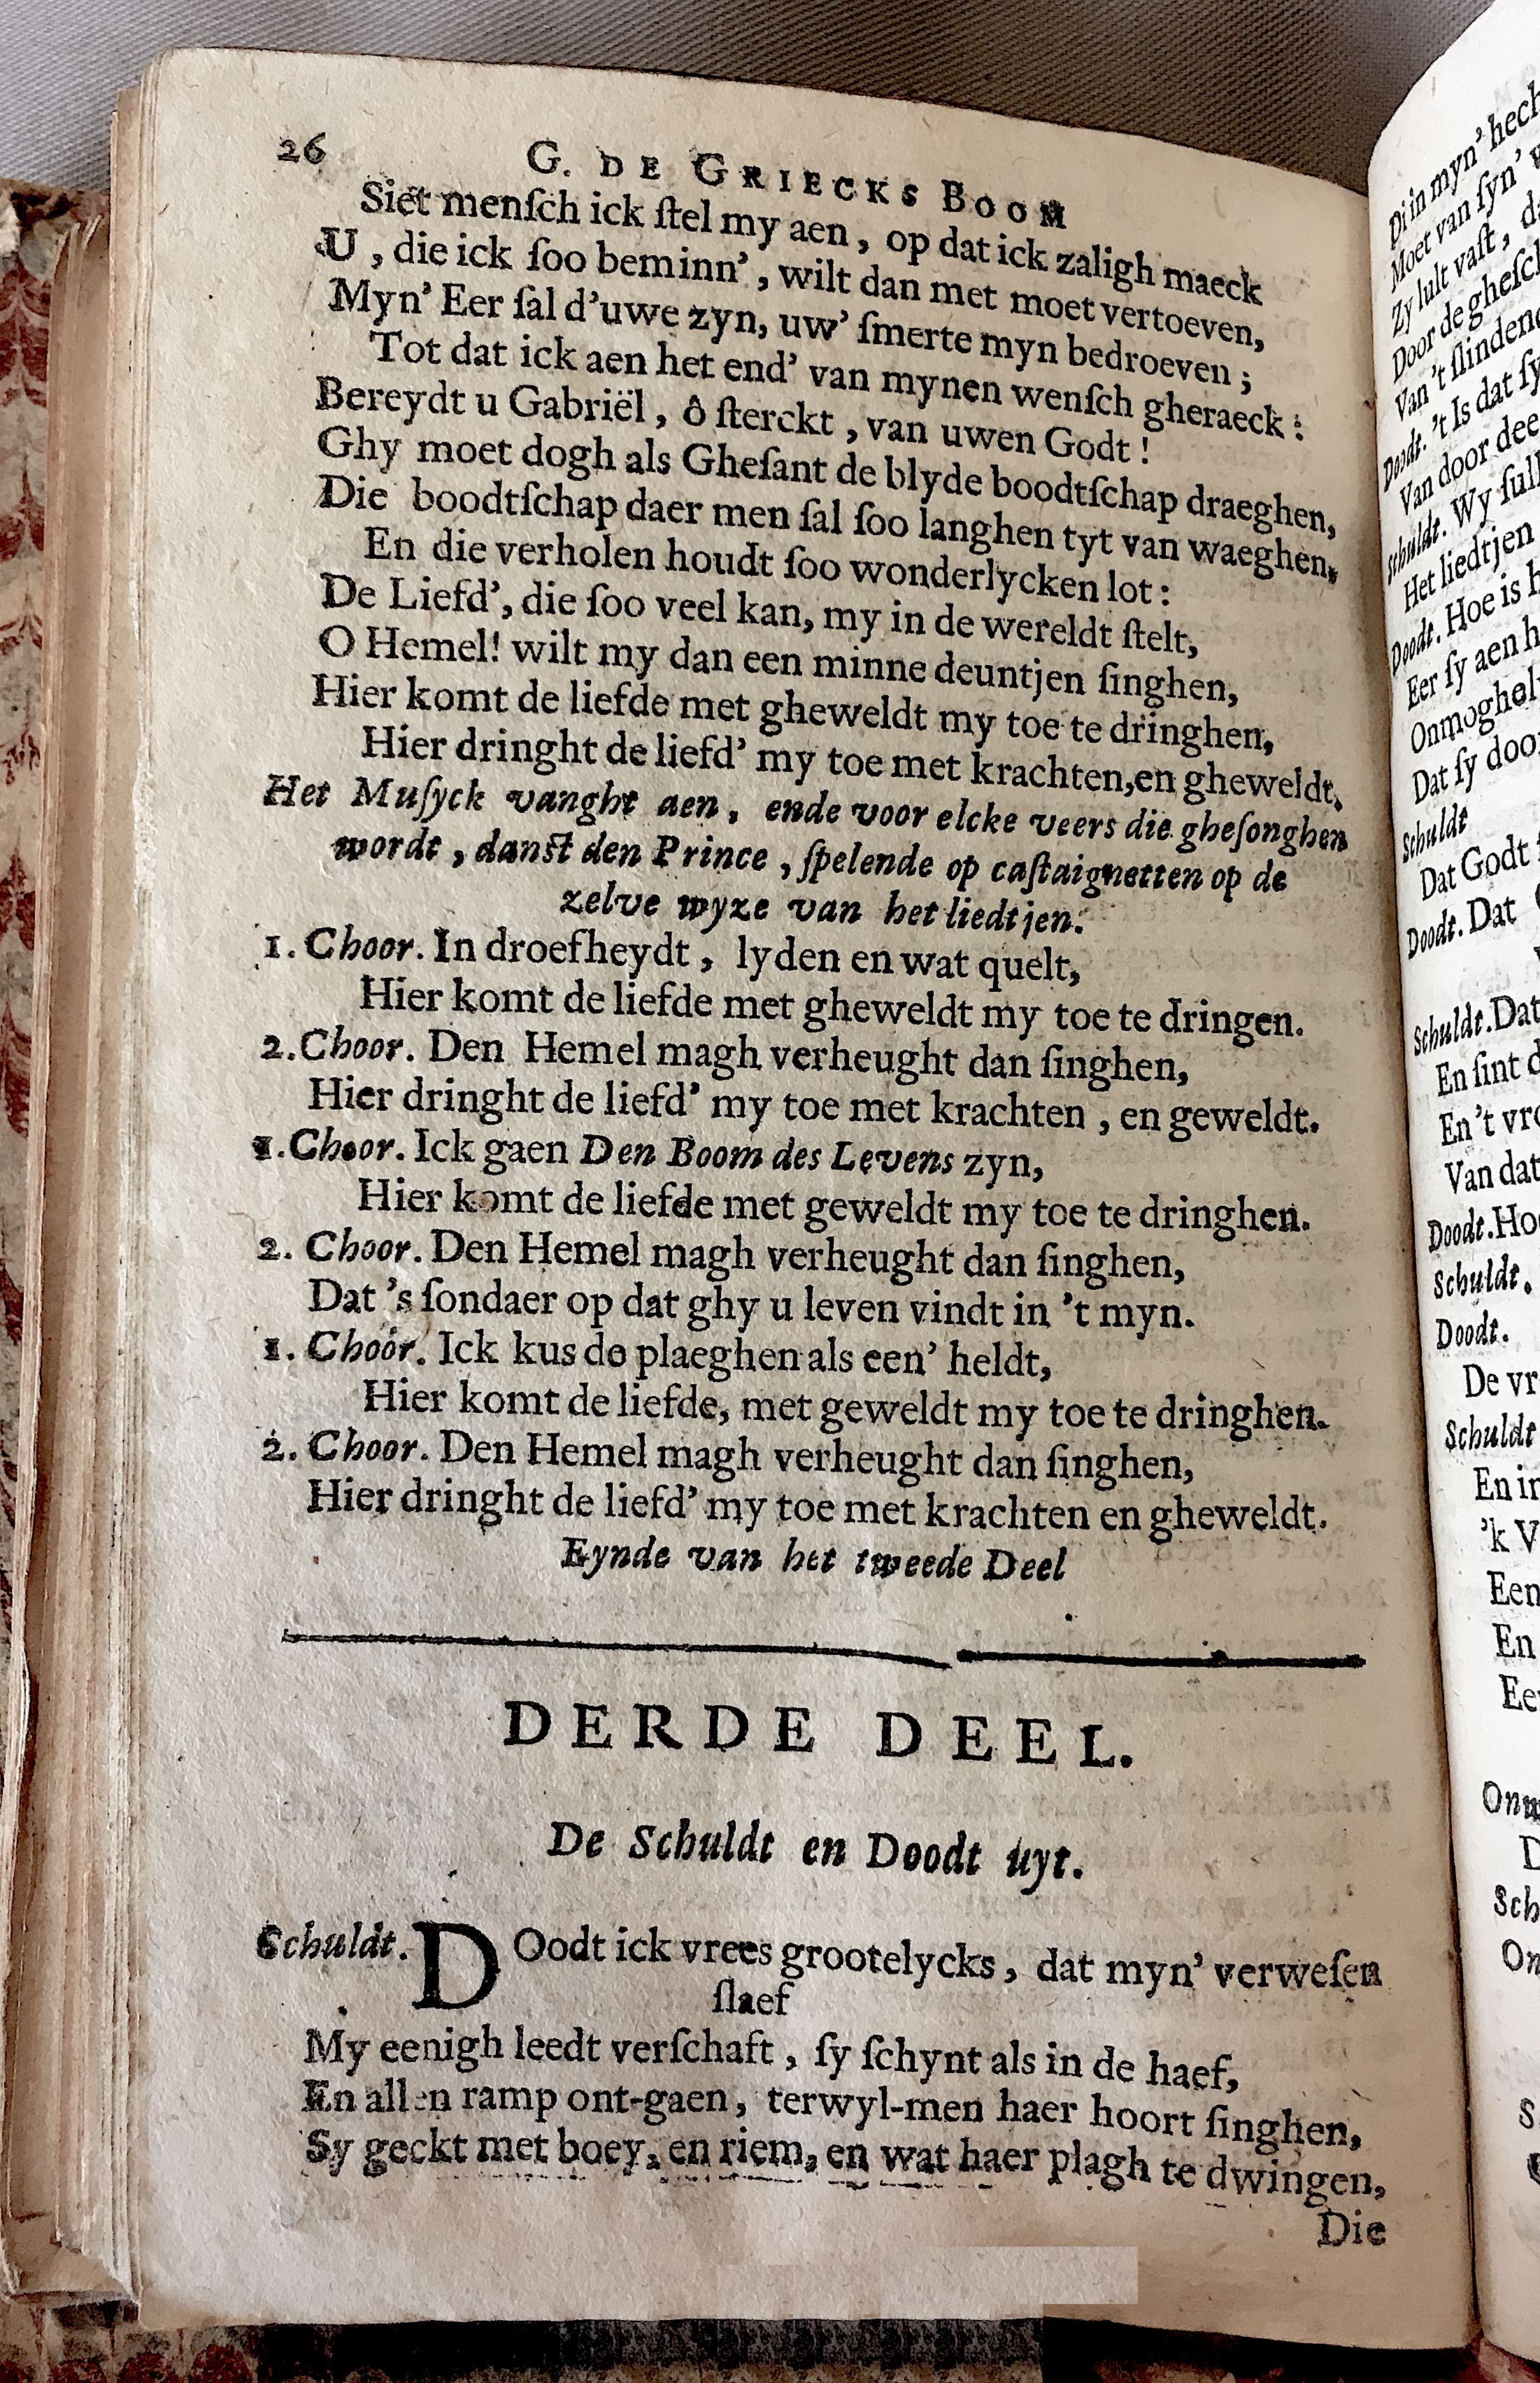 26
G. DE GRIECKS BOOM
Siet menſch ick ſtel my aen, op dat ick zaligh maeck
U, die ick ſoo beminn', wilt dan met moet vertoeven,
Myn' Eer ſal d'uwe zyn, uw' ſmerte myn bedroeven;
Tot dat ick aen het end' van mynen wenſch gheraeck:
Bereydt u Gabriël, ô ſterckt, van uwen Godt!
Ghy moet dogh als Gheſant de blyde boodtſchap draeghen,
Die boodtſchap daer men ſal ſoo langhen tyt van waeghen,
En die verholen houdt ſoo wonderlycken lot:
De Liefd', die ſoo veel kan, my in de wereldt ſtelt,
O Hemel! wilt my dan een minne deuntjen ſinghen,
Hier komt de liefde met gheweldt my toe te dringhen,
Hier dringht de liefd' my toe met krachten, en gheweldt.
Het Muſyck vanght aen, ende voor elcke veers die gheſonghen
wordt, danſt den Prince, ſpelende op caſtaignetten op de
zelve wyze van het liedtjen.
1. Choor. In droefheydt, lyden en wat quelt,
Hier komt de liefde met gheweldt my toe te dringen.
2. Choor. Den Hemel magh verheught dan ſinghen,
Hier dringht de liefd' my toe met krachten, en geweldt.
1. Choor. Ick gaen Den Boom des Levens zyn,
Hier komt de liefde met geweldt my toe te dringhen.
2. Choor. Den Hemel magh verheught dan ſinghen,
Dat 's ſondaer op dat ghy u leven vindt in 't myn.
1. Choor. Ick kus de plaeghen als een' heldt,
Hier komt de liefde, met geweldt my toe te dringhen.
2. Choor. Den Hemel magh verheught dan ſinghen,
Hier dringht de liefd' my toe met krachten en gheweldt.
Eynde van het tweede Deel
DERDE DEEL.
De Schuldt en Doodt uyt.
Schuldt. DOodt ick vrees grootelycks, dat myn' verweſen
ſlaef
My eenigh leedt verſchaft, ſy ſchynt als in de haef,
En allen ramp ont-gaen, terwyl-men haer hoort ſinghen,
Sy geckt met boey, en riem, en wat haer plagh te dwingen,
Die
Di in myn' hech
Moet van ſyn'
Zy lult vaſt,
Door de gheſch
Van 't ſlinden
Doodt. 't Is dat ſy
Van door dee
Schuldt. Wy ſull
Het liedtjen
Doodt. Hoe is h
Eer ſy aen h
Onmoghel
Dat ſy door
Schuldt
Dat Godt
Doodt. Dat
Schuldt. Dat
En ſint d
En 't vro
Van dat
Doodt. Ho
Schuldt.
Doodt.
De vr
Schuldt
En in
'k V
Een
En
Ee
On
D
Sch
On
S